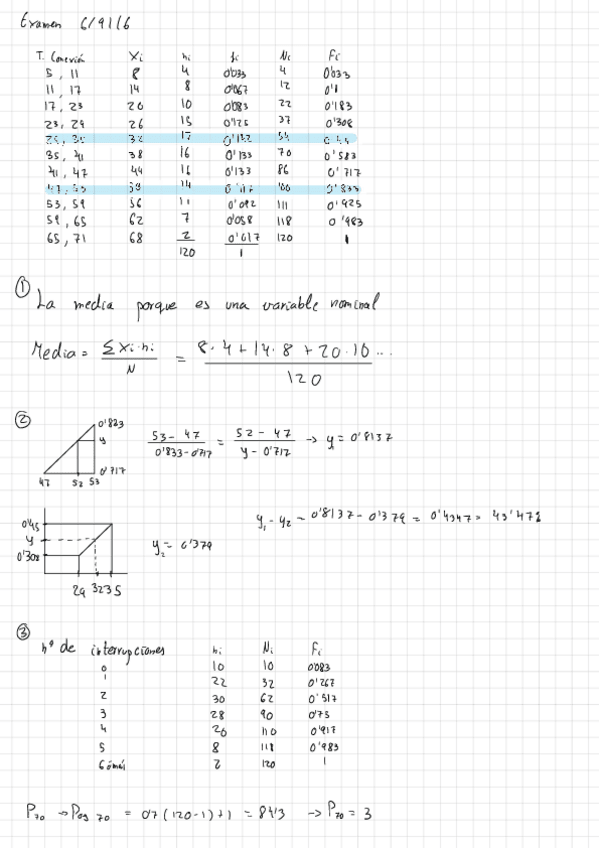 Examen 6/9/16
T. Conexión Xi ni fi Ni Fi
5, 11 8 4 0'033 4 0'033
11, 17 14 8 0'067 12 0'1
17, 23 20 10 0'083 22 0'183
23, 29 26 15 0'125 37 0'308
29, 35 32 17 0'142 54 0'45
35, 41 38 16 0'133 70 0'583
41, 47 44 16 0'133 86 0'717
47, 53 50 14 0'117 100 0'833
53, 59 56 11 0'092 111 0'925
59, 65 62 7 0'058 118 0'983
65, 71 68 2 0'017 120 1
120 1
① La media porque es una variable nominal
Media = Σ Xi·ni / N = 8·4 + 14·8 + 20·10 ... / 120
②
0'833
y
0'717
47 52 53
53 - 47 / 0'833 - 0'717 = 52 - 47 / y - 0'717 → y₁ = 0'8137
0'45
y
0'308
29 32 35
y₂ = 0'379
y₁ - y₂ = 0'8137 - 0'379 = 0'4347 =
③ nº de interrupciones ni Ni Fi
0 10 10 0'083
1 22 32 0'267
2 30 62 0'517
3 28 90 0'75
4 20 110 0'917
5 8 118 0'983
6 ó más 2 120 1
P₇₀ → Pos 70 = 0'7 (120-1) + 1 = 84'3 → P₇₀ = 3